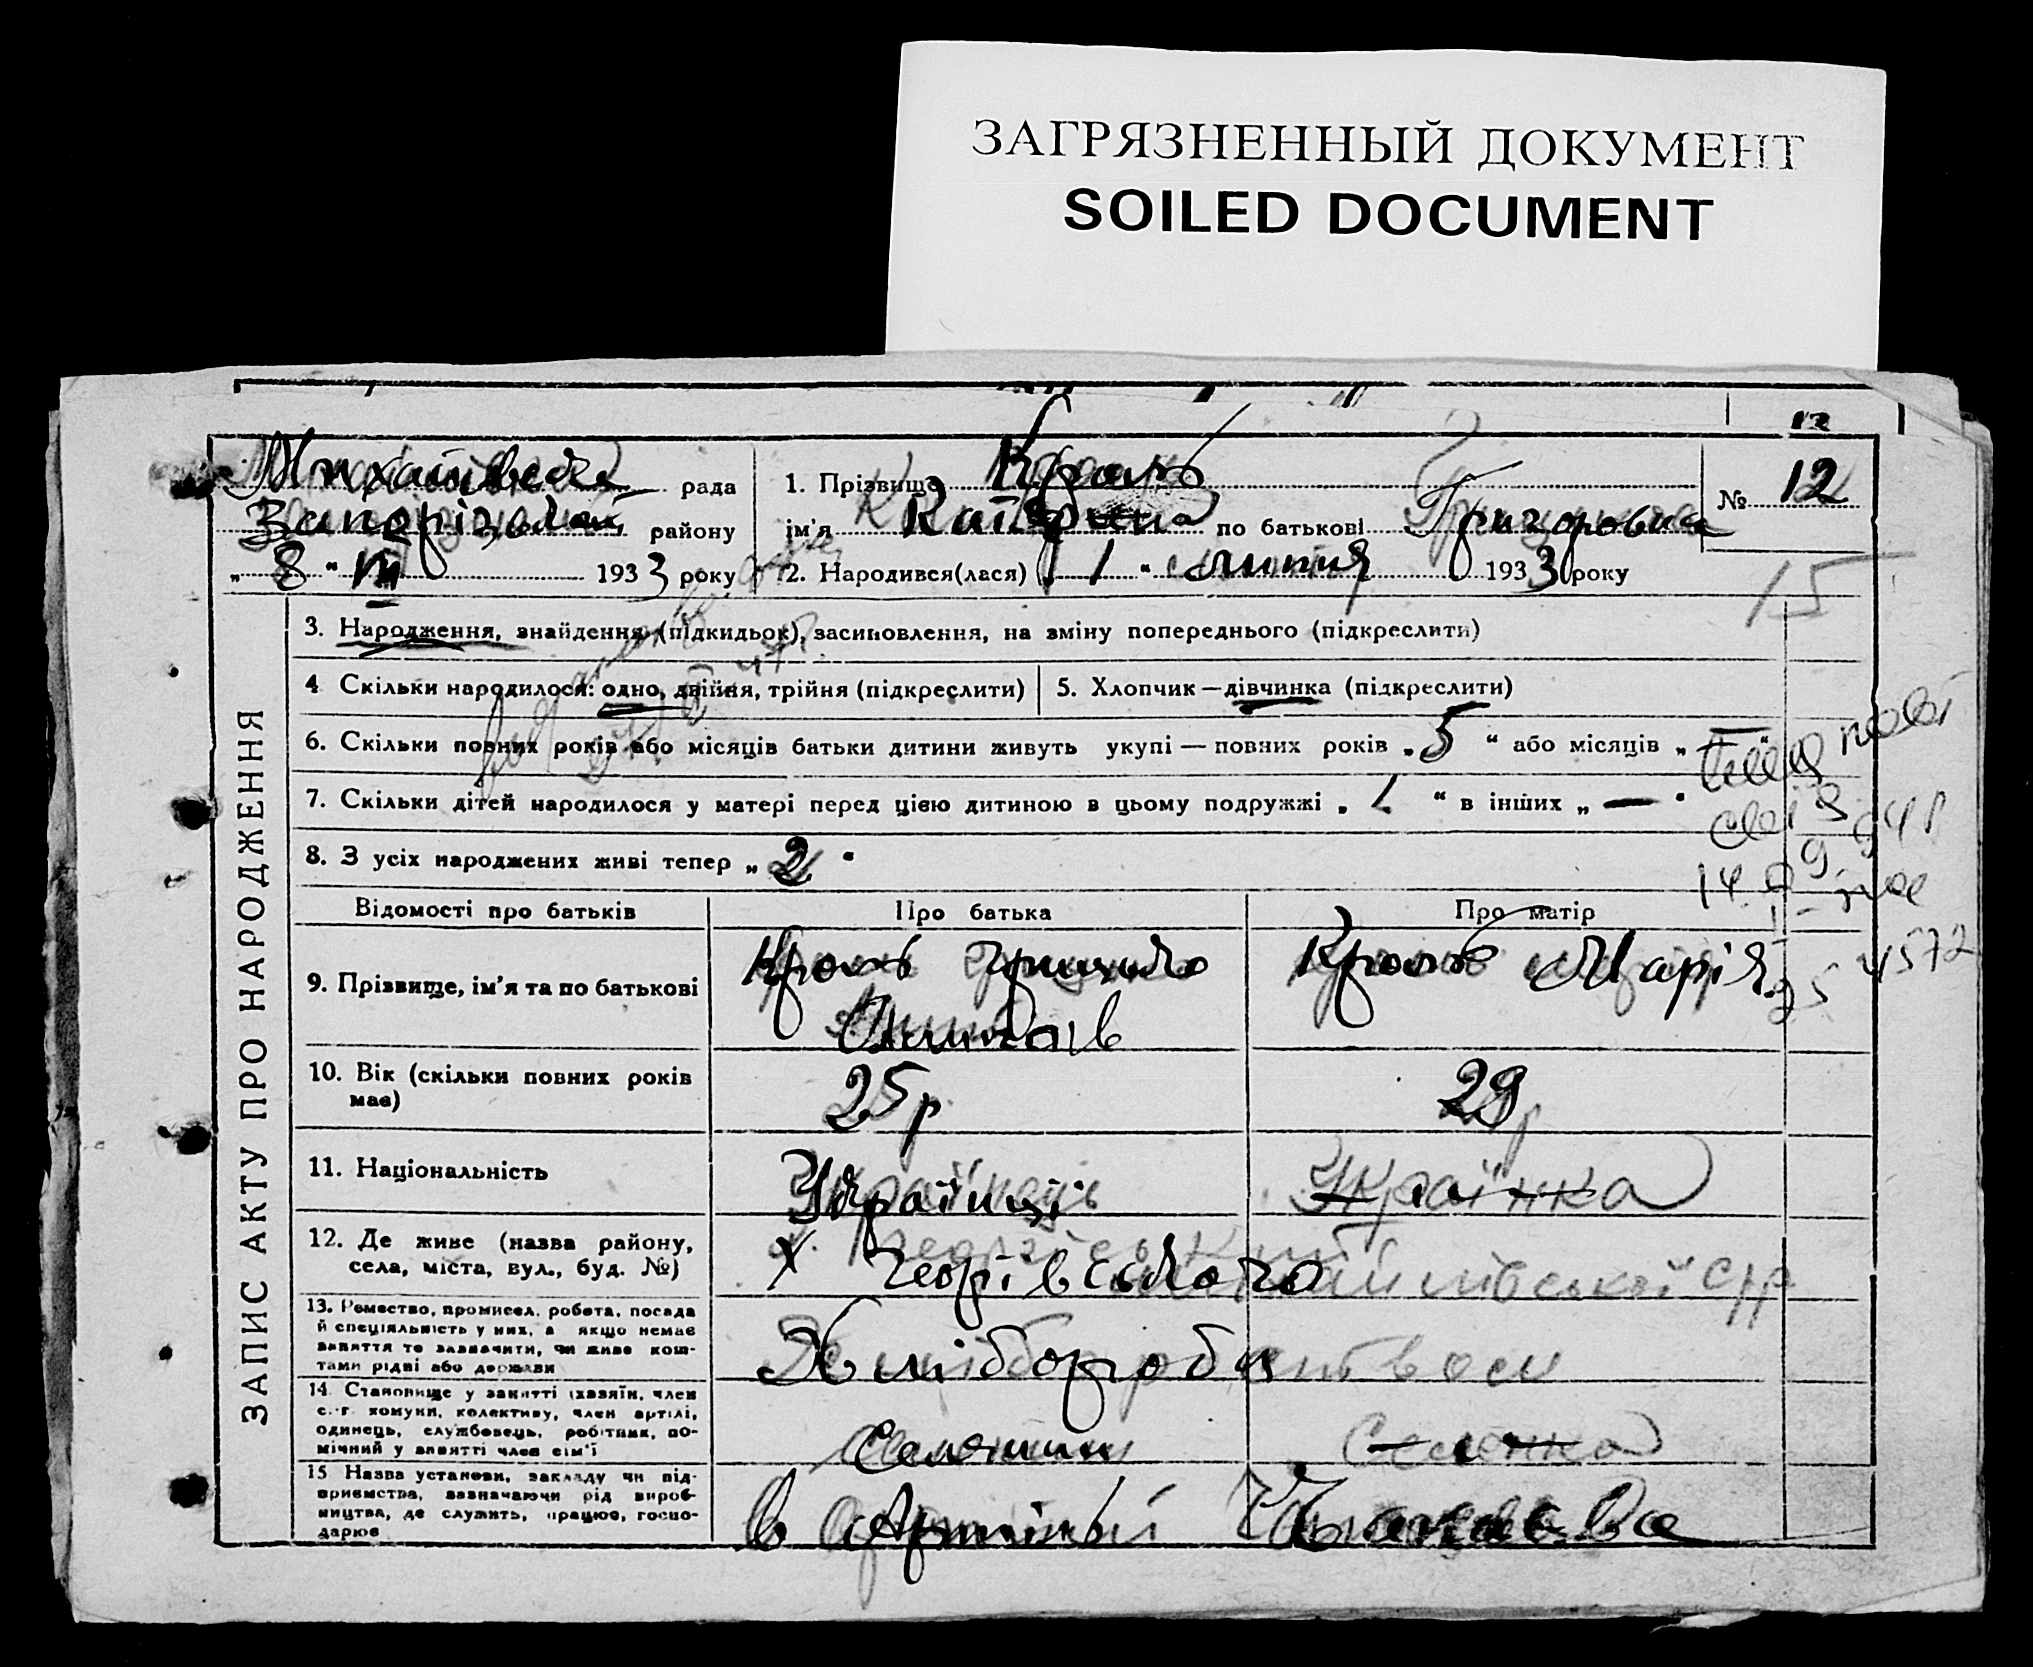 ЗАГРЯЗНЕННЫЙ ДОКУМЕНТ
SOILED DOCUMENT
12
рада
району
„8“ 1933 року
1. Прізвище Кроль
ім'я Катерина по батькові Григоровна
2. Народився(лася) „1“ липня 1933 року
№ 12
15
ЗАПИС АКТУ ПРО НАРОДЖЕННЯ
3. Народження, знайдення (підкидьок), засиновлення, на зміну попереднього (підкреслити)
4 Скільки народилося: одно, двійня, трійня (підкреслити)
5. Хлопчик — дівчинка (підкреслити)
6. Скільки повних років або місяців батьки дитини живуть укупі — повних років „5“ або місяців „—“
7. Скільки дітей народилося у матері перед цією дитиною в цьому подружжі „1“ в інших „—“
8. З усіх народжених живі тепер „2“
Відомості про батьків
Про батька
Про матір
9. Прізвище, ім'я та по батькові
Кроль Грицько
Кроль Марія
10. Вік (скільки повних років має)
25 р
29
11. Національність
Українці
Українка
12. Де живе (назва району, села, міста, вул., буд. №)
13. Ремество, промисел, робота, посада й спеціяльність у них, а якщо немає заняття то зазначити, чи живе коштами рідні або держави
Хлібороб
14 Становище у занятті (хазяїн, член с.-г. комуни, колективу, член артілі, одинець, службовець, робітник, помічний у занятті член сім'ї
Селянин
Селянка
15 Назва установи, закладу чи підприємства, зазначаючи рід виробництва, де служить, працює, господарює
в Артілі